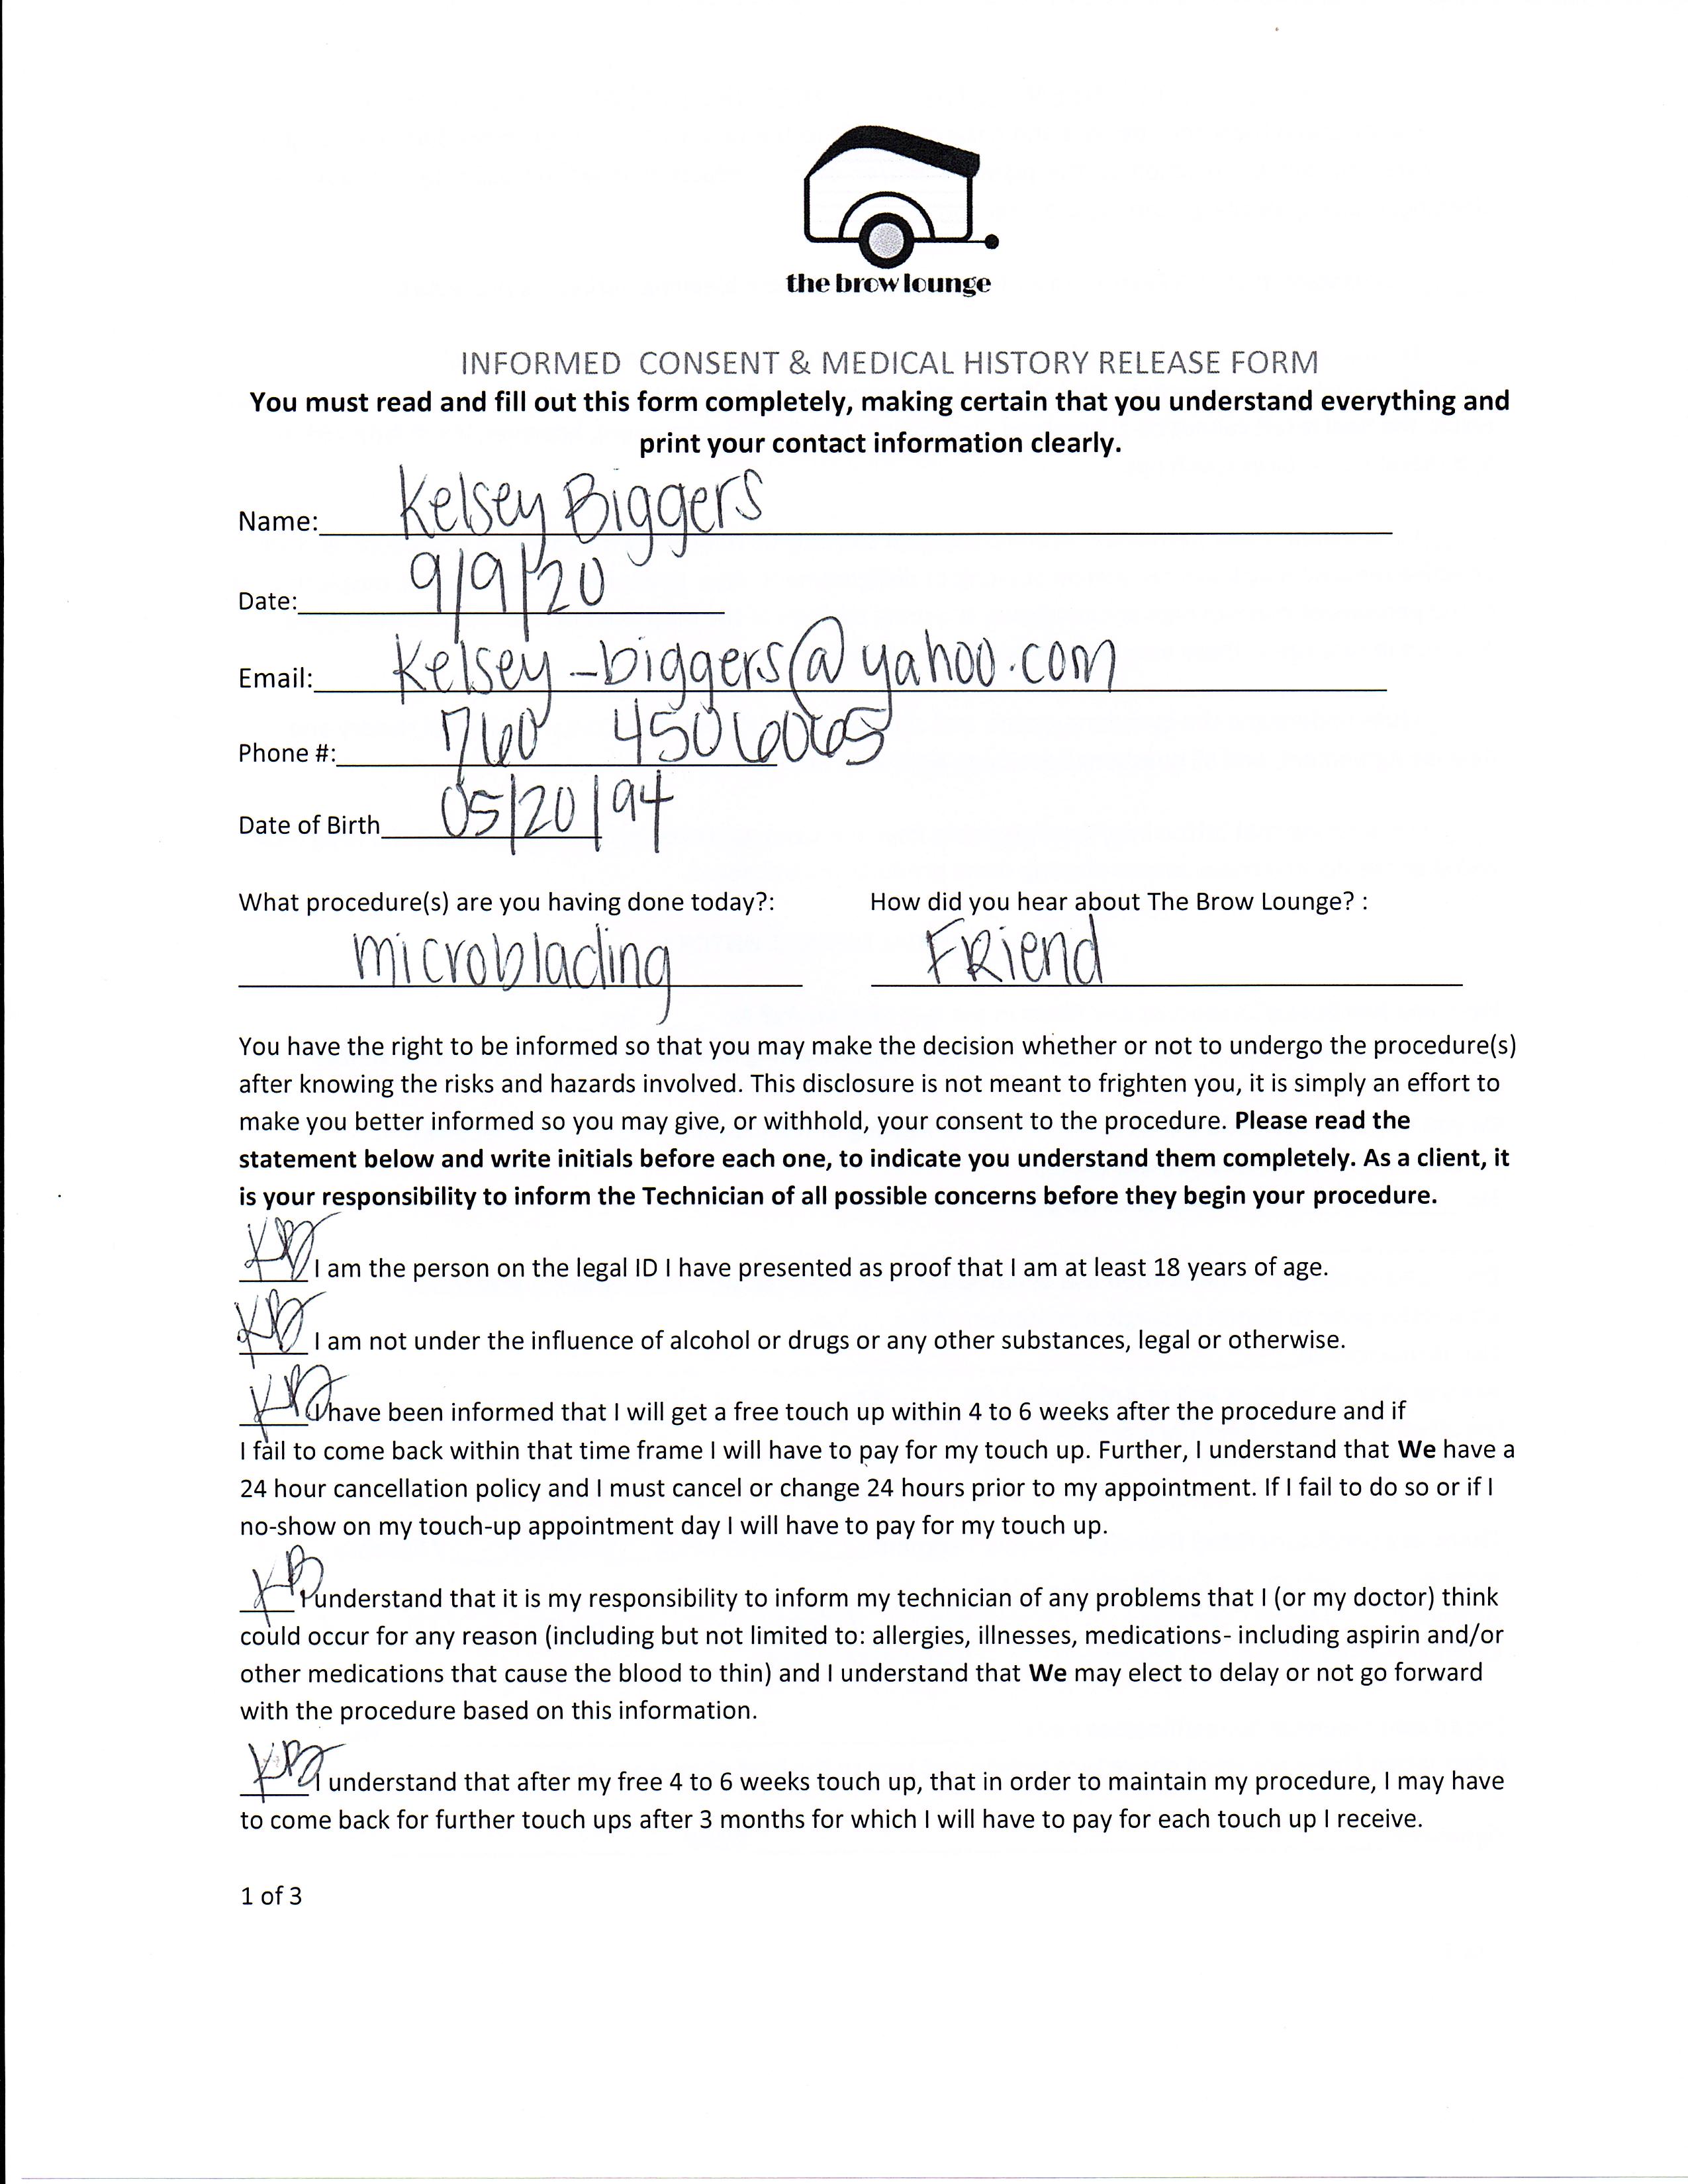 the brow lounge
INFORMED CONSENT & MEDICAL HISTORY RELEASE FORM
You must read and fill out this form completely, making certain that you understand everything and
print your contact information clearly.
Name: Kelsey Biggers
Date: 9/9/20
Email: Kelsey_biggers@yahoo.com
Phone #: 760 4506065
Date of Birth 05/20/94
What procedure(s) are you having done today?: How did you hear about The Brow Lounge? :
microblading FRiend
You have the right to be informed so that you may make the decision whether or not to undergo the procedure(s)
after knowing the risks and hazards involved. This disclosure is not meant to frighten you, it is simply an effort to
make you better informed so you may give, or withhold, your consent to the procedure. Please read the
statement below and write initials before each one, to indicate you understand them completely. As a client, it
is your responsibility to inform the Technician of all possible concerns before they begin your procedure.
KB I am the person on the legal ID I have presented as proof that I am at least 18 years of age.
KB I am not under the influence of alcohol or drugs or any other substances, legal or otherwise.
KB I have been informed that I will get a free touch up within 4 to 6 weeks after the procedure and if
I fail to come back within that time frame I will have to pay for my touch up. Further, I understand that We have a
24 hour cancellation policy and I must cancel or change 24 hours prior to my appointment. If I fail to do so or if I
no-show on my touch-up appointment day I will have to pay for my touch up.
KB I understand that it is my responsibility to inform my technician of any problems that I (or my doctor) think
could occur for any reason (including but not limited to: allergies, illnesses, medications- including aspirin and/or
other medications that cause the blood to thin) and I understand that We may elect to delay or not go forward
with the procedure based on this information.
KB I understand that after my free 4 to 6 weeks touch up, that in order to maintain my procedure, I may have
to come back for further touch ups after 3 months for which I will have to pay for each touch up I receive.
1 of 3